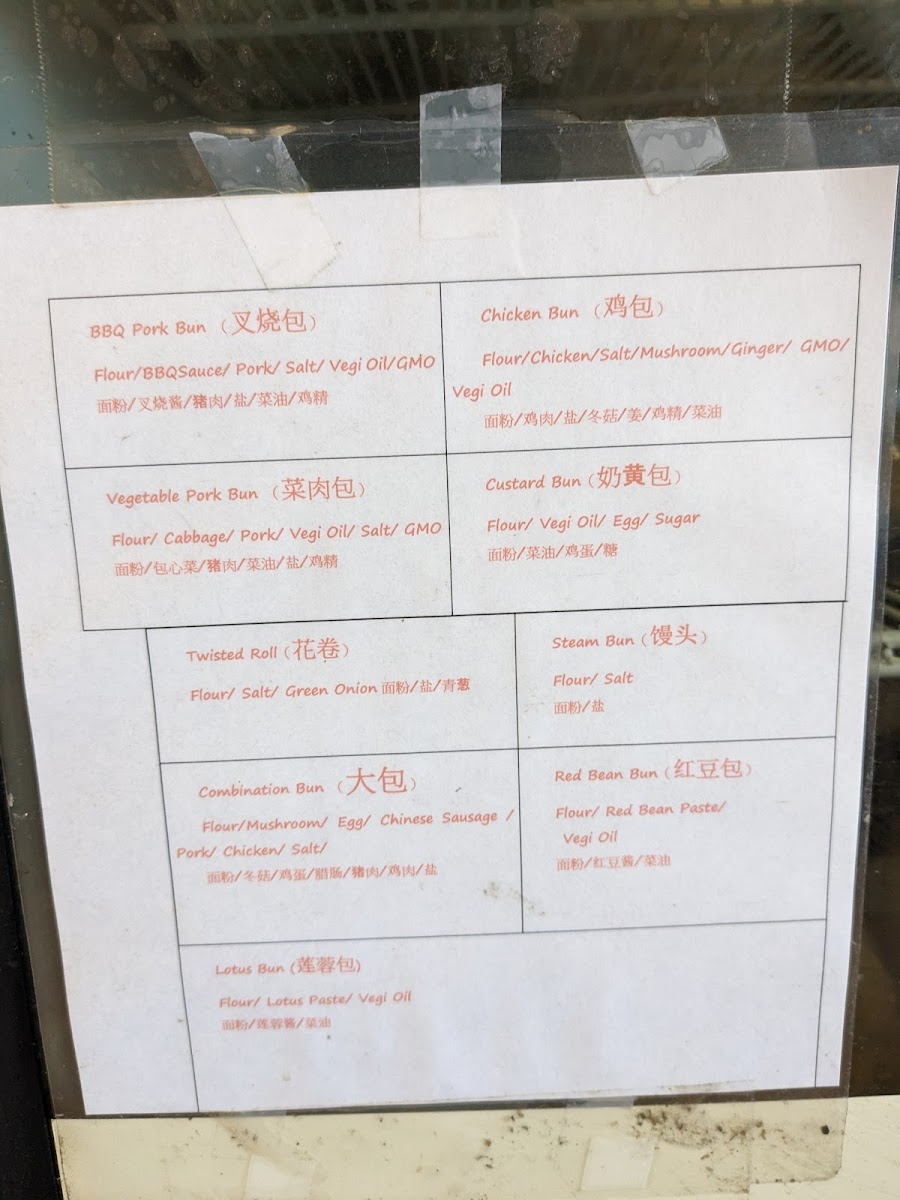 BBQ Pork Bun （叉烧包）
Flour/BBQSauce/ Pork/ Salt/ Vegi Oil/GMO
面粉/叉烧酱/猪肉/盐/菜油/鸡精
Chicken Bun （鸡包）
Flour/Chicken/Salt/Mushroom/Ginger/ GMO/
Vegi Oil
面粉/鸡肉/盐/冬菇/姜/鸡精/菜油
Vegetable Pork Bun （菜肉包）
Flour/ Cabbage/ Pork/ Vegi Oil/ Salt/ GMO
面粉/包心菜/猪肉/菜油/盐/鸡精
Custard Bun（奶黄包）
Flour/ Vegi Oil/ Egg/ Sugar
面粉/菜油/鸡蛋/糖
Twisted Roll（花卷）
Flour/ Salt/ Green Onion 面粉/盐/青葱
Steam Bun（馒头）
Flour/ Salt
面粉/盐
Combination Bun （大包）
Flour/Mushroom/ Egg/ Chinese Sausage /
Pork/ Chicken/ Salt/
面粉/冬菇/鸡蛋/腊肠/猪肉/鸡肉/盐
Red Bean Bun（红豆包）
Flour/ Red Bean Paste/
Vegi Oil
面粉/红豆酱/菜油
Lotus Bun (莲蓉包)
Flour/ Lotus Paste/ Vegi Oil
面粉/莲蓉酱/菜油